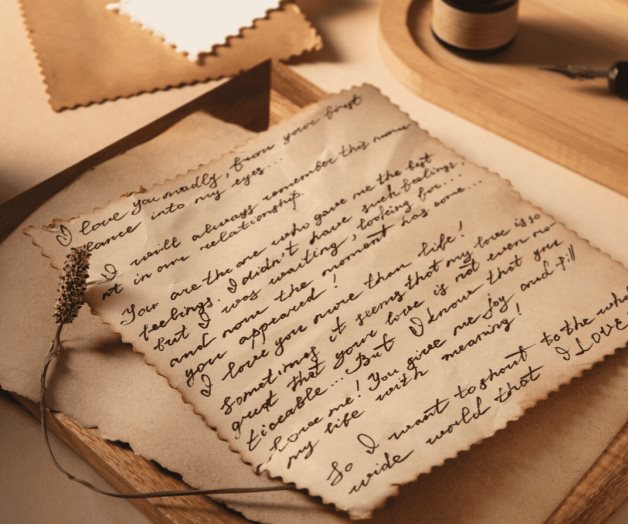 I love you madly, from your first
glance into my eyes...
I will always remember this mom
nt in our relationship.
You are the one who gave me the best
feelings. I didn't have such feelings...
but I was waiting, looking for...
and now the moment has come...
you appeared!
I love you more than life!
Sometimes it seems that my love is so
great that your love is not even no
ticeable... But I know that you
love me! You give me joy and fill
my life with meaning!
So I want to shout to the who
wide world that I LOVE